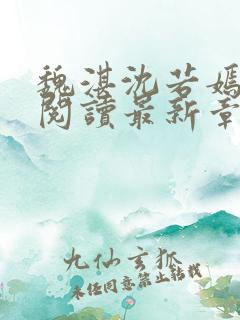 魏湛沈若嫣
閱讀最新章
九仙玄狐
未经同意禁止转载